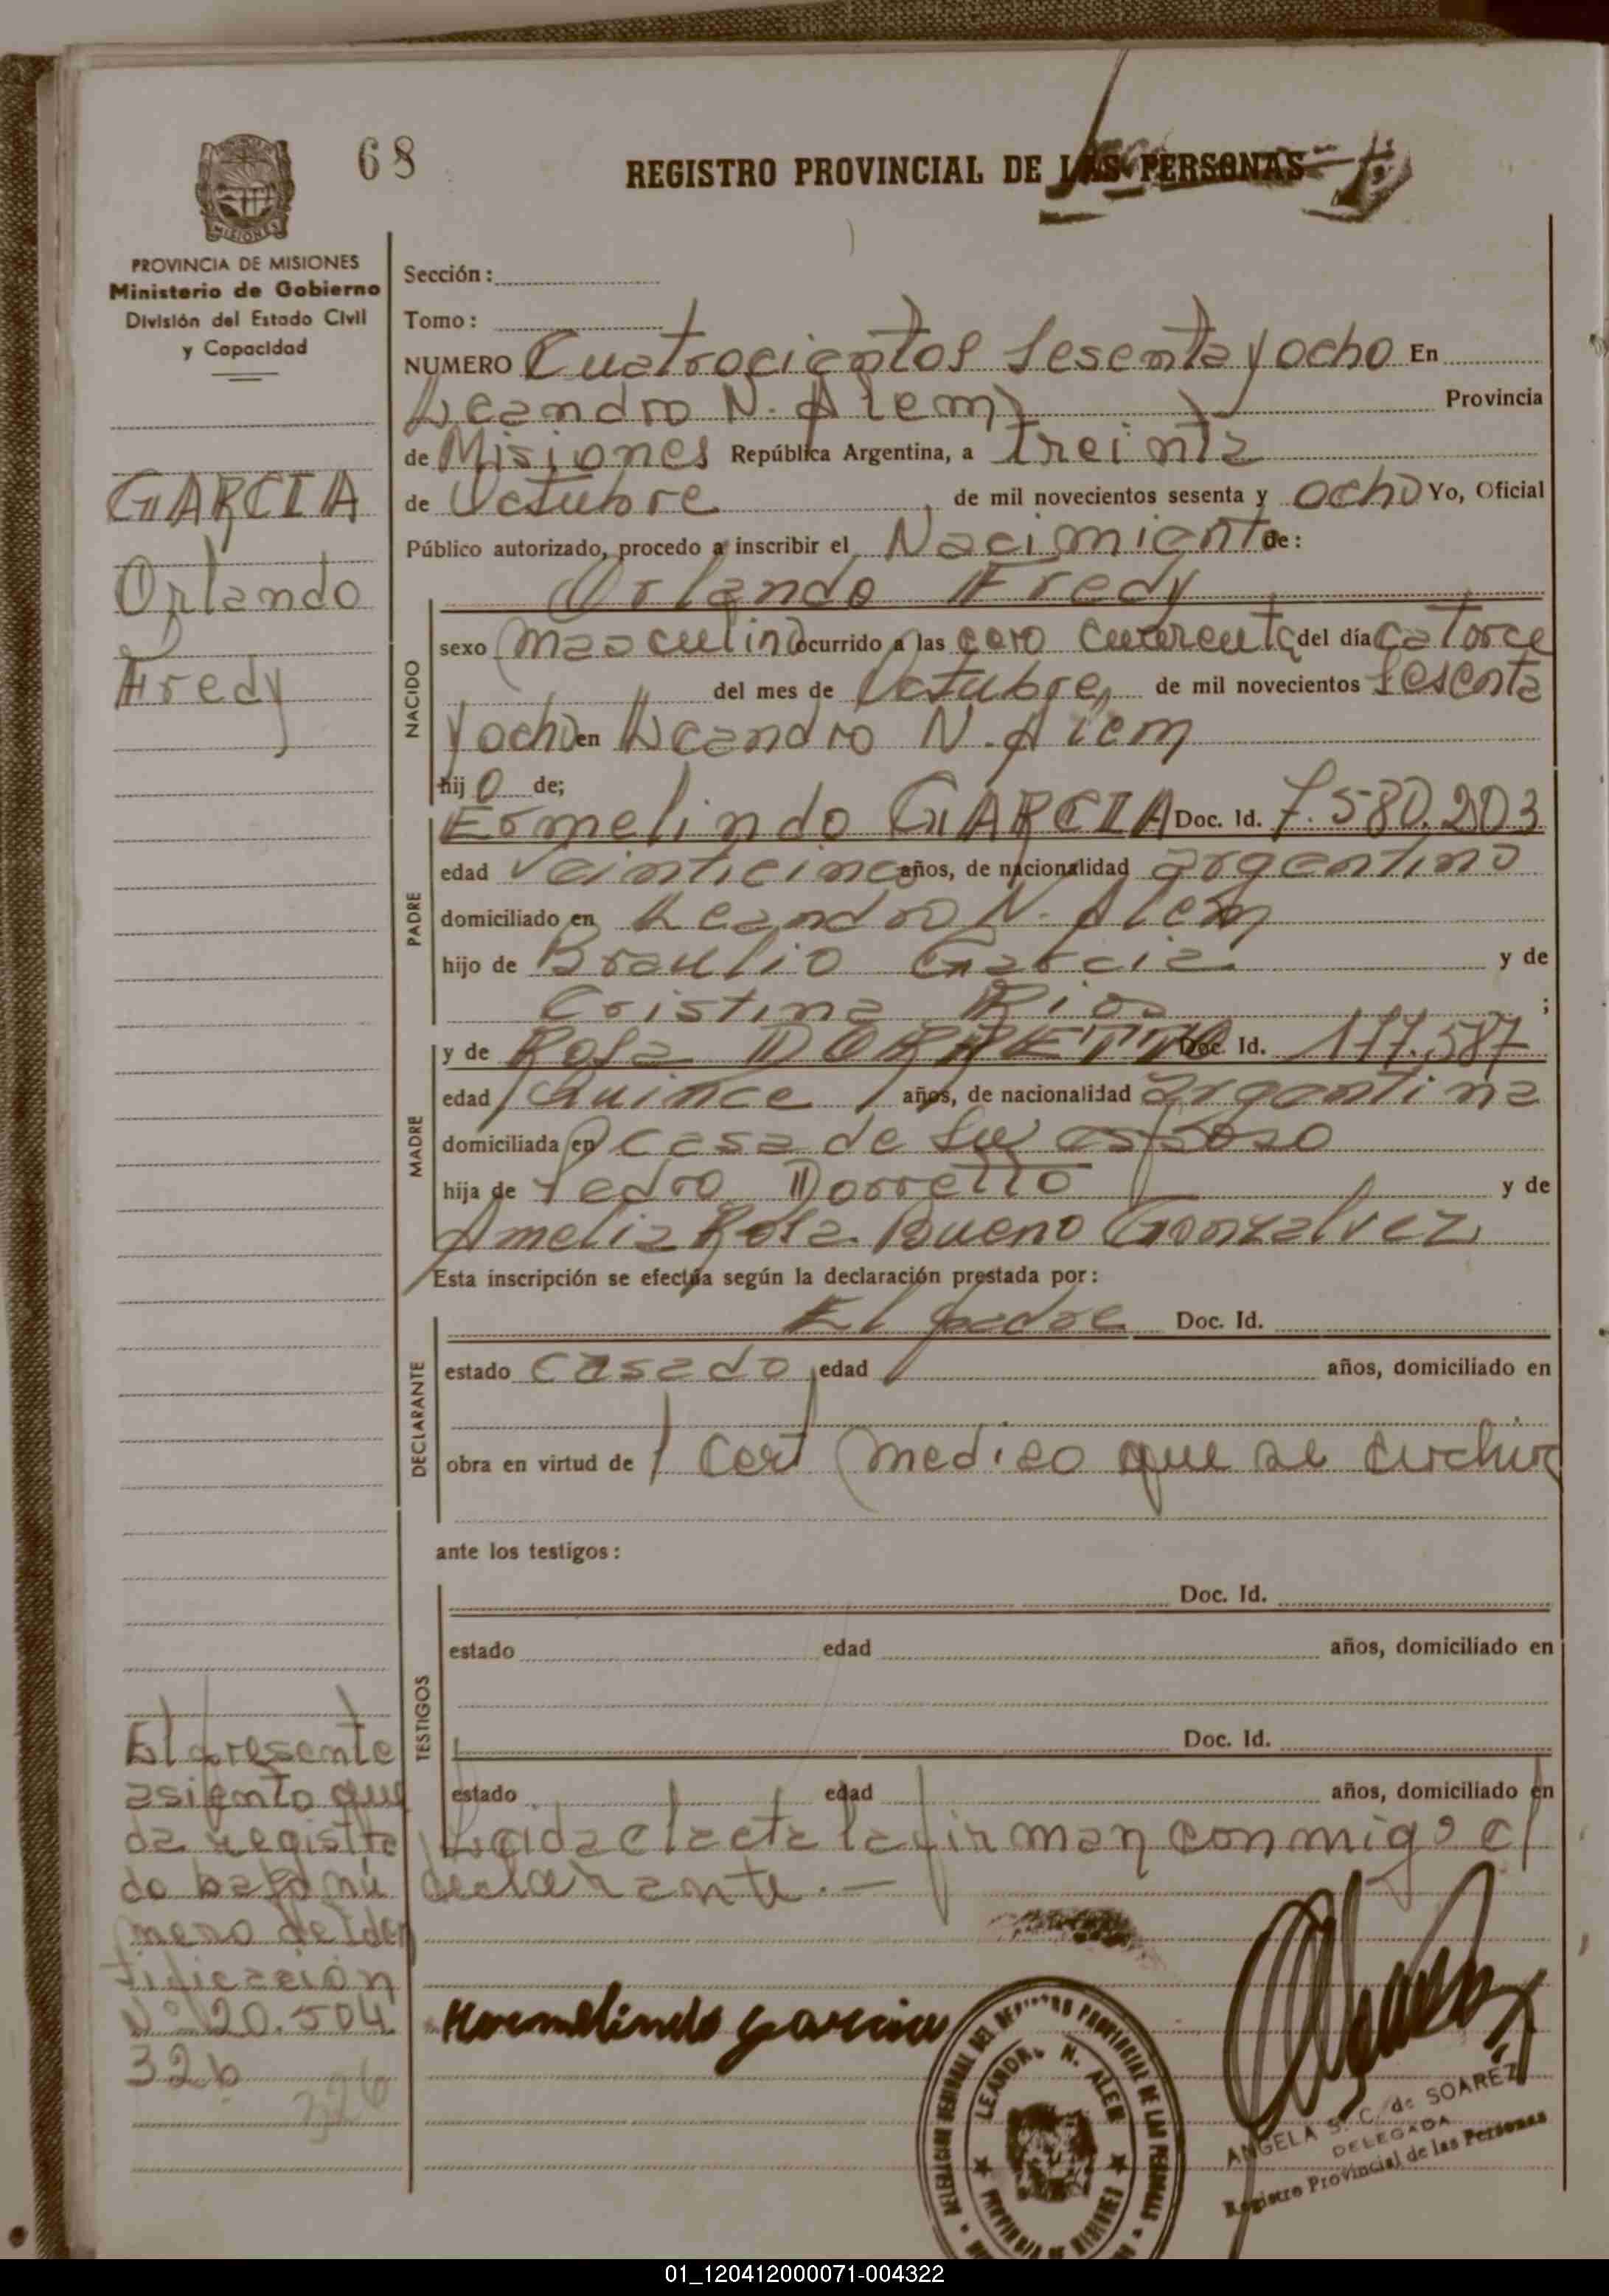 68
REGISTRO PROVINCIAL DE LAS PERSONAS
MISIONES
PROVINCIA DE MISIONES
Ministerio de Gobierno
División del Estado Civil
y Capacidad
GARCIA
Orlando
Fredy
Sección:
Tomo:
NUMERO Cuatrocientos Sesenta y ocho En
Leandro N. Alem Provincia
de Misiones República Argentina, a treinta
de Octubre de mil novecientos sesenta y ocho Yo, Oficial
Público autorizado, procedo a inscribir el Nacimiento de:
Orlando Fredy
NACIDO
sexo masculino ocurrido a las cero cuarenta del día catorce
del mes de Octubre, de mil novecientos Sesenta
y ocho en Leandro N. Alem
hijo de;
PADRE
Ermelindo GARCIA Doc. Id. 7.580.203
edad Veinticinco años, de nacionalidad argentino
domiciliado en Leandro N. Alem
hijo de Braulio Garcia y de
Cristina Rios ;
MADRE
y de Rosa DORRETTO Doc. Id. 177.587
edad Quince años, de nacionalidad argentina
domiciliada en casa de su esposo
hija de Pedro Dorretto y de
Amelia Rosa Bueno Gonzalvez
Esta inscripción se efectúa según la declaración prestada por:
DECLARANTE
El padre Doc. Id.
estado casado edad años, domiciliado en
obra en virtud de 1 cert medico que se archiva
ante los testigos:
TESTIGOS
Doc. Id.
estado edad años, domiciliado en
Doc. Id.
estado edad años, domiciliado en
Leida el acta la firman conmigo el
declarante.—
El presente
asiento que
da registra
do bajo nú
mero de Iden
tificación
Nº 20.504
326
326
Hermelindo garcia
DELEGACION REGIONAL DEL REGISTRO PROVINCIAL DE LAS PERSONAS
LEANDRO N. ALEM
PROVINCIA DE MISIONES
ANGELA S. C. de SOAREZ
DELEGADA
Registro Provincial de las Personas
01_120412000071-004322